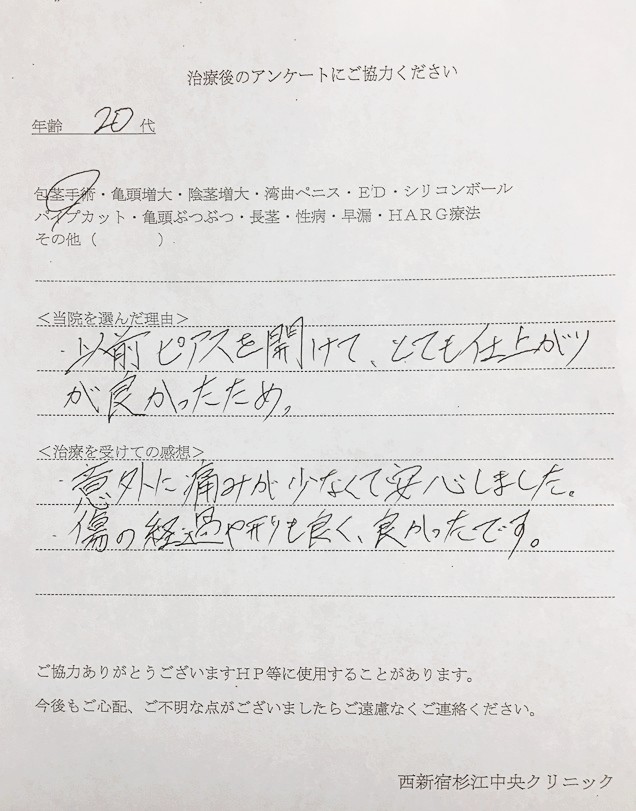 治療後のアンケートにご協力ください
年齢 20 代
包茎手術・亀頭増大・陰茎増大・湾曲ペニス・ED・シリコンボール
パイプカット・亀頭ぶつぶつ・長茎・性病・早漏・HARG療法
その他（　　　　）
＜当院を選んだ理由＞
・以前ピアスを開けて、とても仕上がり
が良かったため。
＜治療を受けての感想＞
・意外に痛みが少なくて安心しました。
・傷の経過や形も良く、良かったです。
ご協力ありがとうございますHP等に使用することがあります。
今後もご心配、ご不明な点がございましたらご遠慮なくご連絡ください。
西新宿杉江中央クリニック